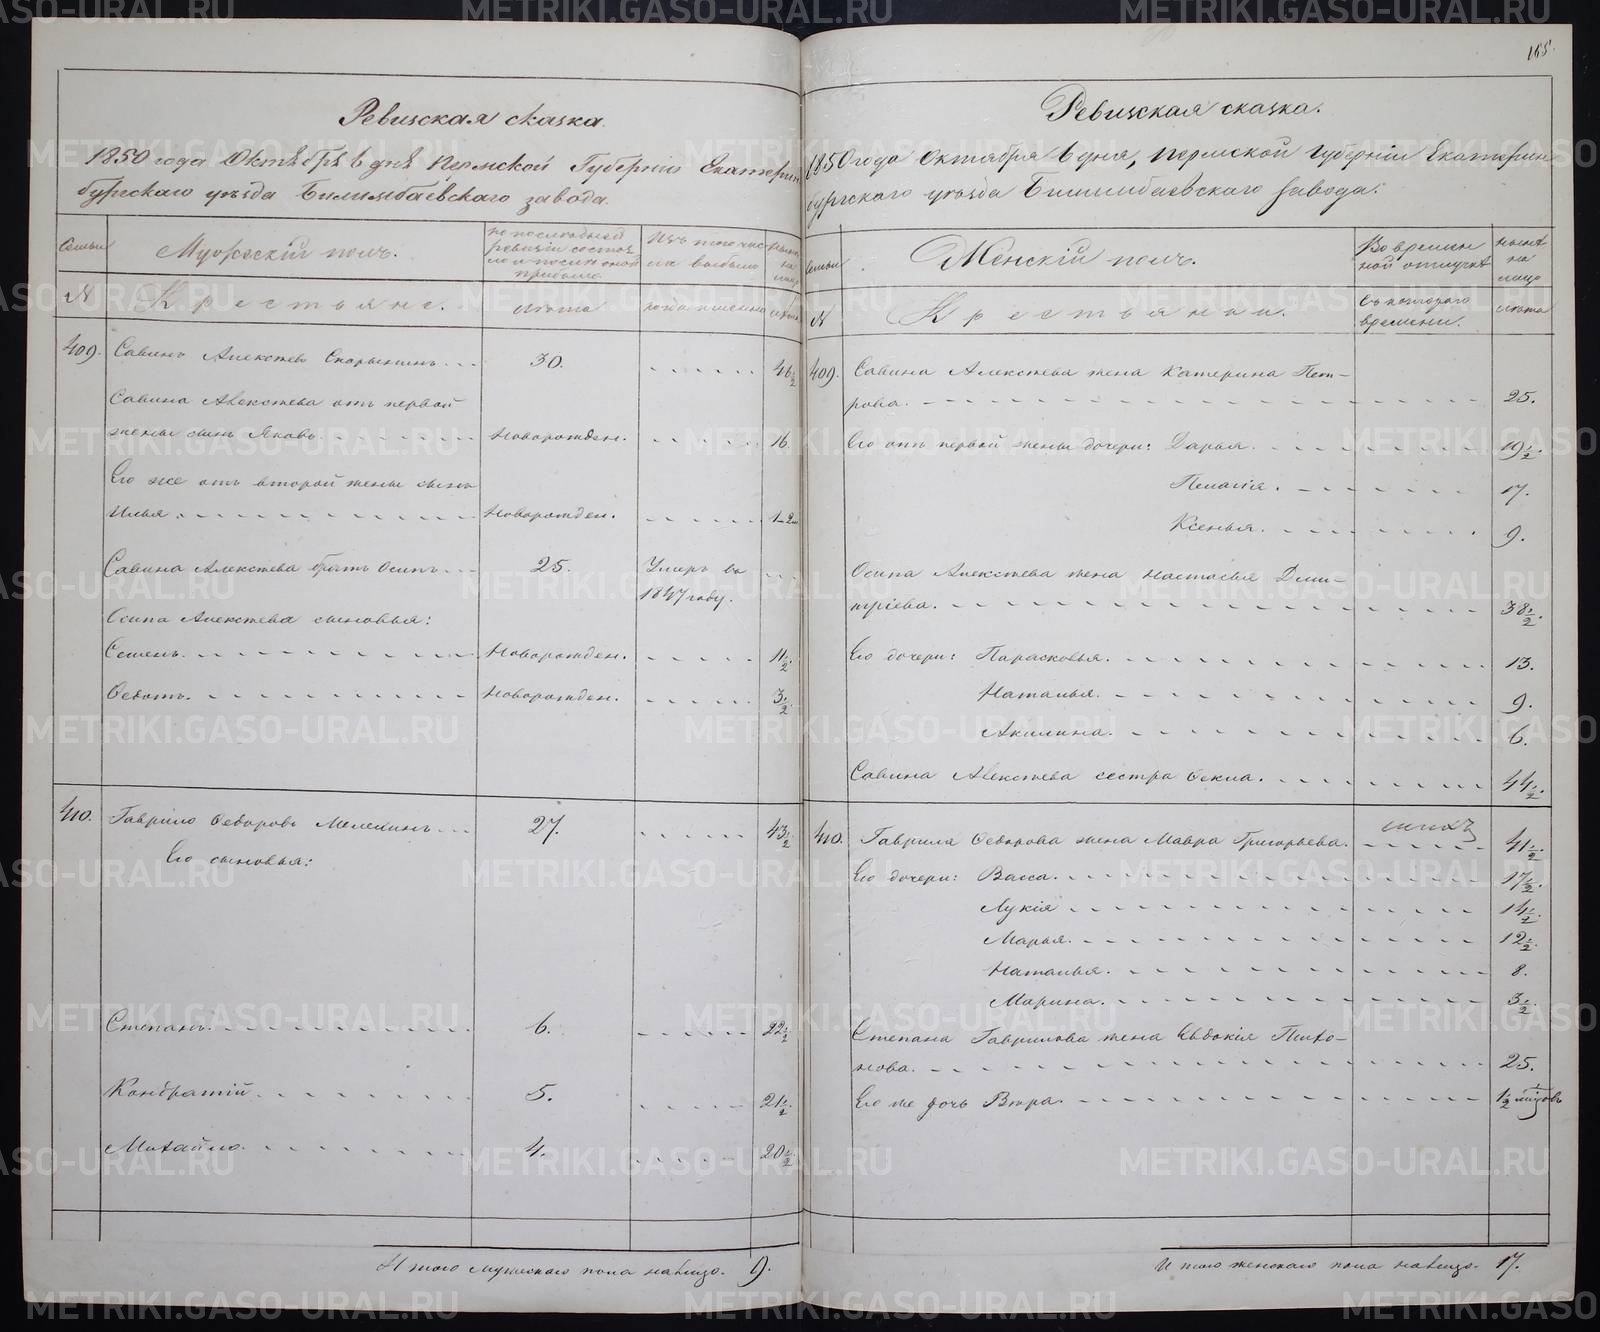 165.
Ревизская сказка.
1850 года Октября 6 дня Пермской Губернии Екатерин
бургскаго уезда Билимбаевскаго завода.
Семьи
Мужескій полъ.
по последней
ревизіи состоя
ло и после оной
прибыло
Изъ того чис
ла выбыло
ныне
на
лицо
N
Крестьяне.
лета
когда именно
лета
409.
Савинъ Алексеевъ Скорынинъ
30.
46 1/2
Савина Алексеева отъ первой
жены сынъ Яковъ.
Новорожден.
16
Его же отъ второй жены сынъ
Илья.
Новорожден.
Савина Алексеева братъ Осипъ
25.
Умеръ въ
1847 году.
Осипа Алексеева сыновья:
Семенъ.
Новорожден.
11 1/2.
Федотъ.
Новорожден.
3 1/2
410.
Гаврило Федоровъ Мелехинъ
27.
43 1/2
Его сыновья:
Степанъ.
6.
22 1/2
Кондратій.
5.
21 1/2.
Михайло.
4.
20 1/2
Итого мужескаго пола налицо. 9.
Ревизская сказка.
1850 года Октября 6 дня, Пермской Губерніи Екатерин
бургскаго уезда Билимбаевскаго завода.
Семьи
Женскій полъ.
Во времен
ной отлучке
ныне
на
лицо
N
Крестьянки.
Съ котораго
времени.
лета
409.
Савина Алексеева жена Катерина Пет-
рова.
25.
Его отъ первой жены дочери: Дарья.
19 1/2.
Пелагія.
17.
Ксенья.
9.
Осипа Алексеева жена Настасья Дми-
тріева.
38 1/2.
Его дочери: Парасковья.
13.
Наталья.
9.
Акилина.
6.
Савина Алексеева сестра Фекла.
44 1/2.
410.
Гаврила Федорова жена Мавра Григорьева.
41 1/2.
Его дочери: Васса.
17 1/2.
Лукія
14 1/2.
Марья.
12 1/2.
Наталья.
8.
Марина.
3 1/2
Степана Гаврилова жена Евдокія Тихо-
нова.
25.
Его же дочь Вера.
1 1/2
Итого женскаго пола налицо. 17.
METRIKI.GASO-URAL.RU